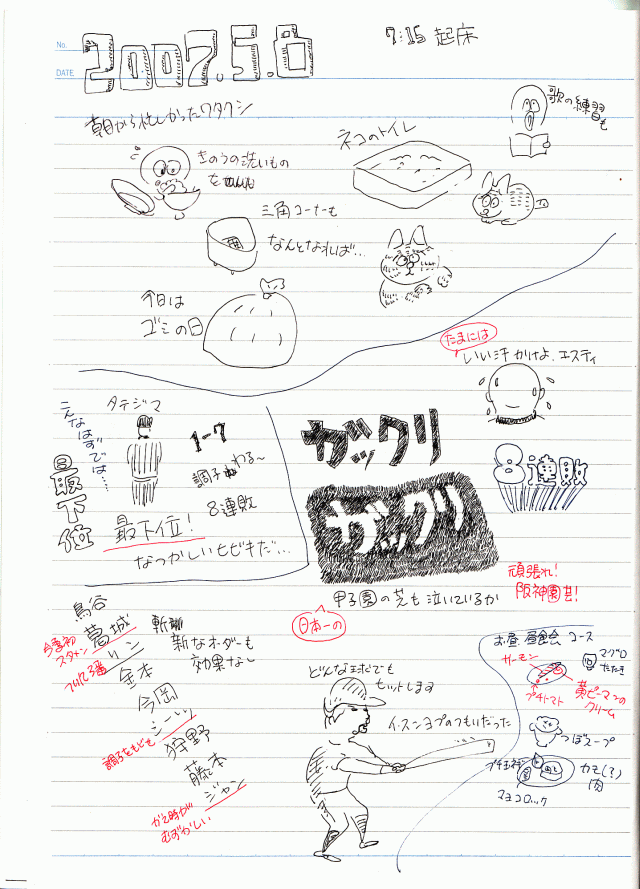 No.
DATE
2007.5.8
7:15 起床
朝から忙しかったワタクシ
歌の練習も
ネコのトイレ
きのうの洗いもの
を
三角コーナーも
なんとなれば…
今日は
ゴミの日
たまには
いい汗かけよ、エスティ
こんなはずでは…
最下位
タテジマ
1-7
調子わる〜
8連敗
最下位!
なつかしいヒビキだ…
ガックリ
ガックリ
8連敗
甲子園の芝も泣いているか
日本一の
頑張れ!
阪神園芸!
鳥谷
葛城
今季初
スタメン
リン
金本
今岡
シーツ
調子をもども
狩野
藤本
ジャン
かえ時が
むずかしい
斬新なオーダーも
効果なし
どんな球でも
ヒットします
イ・スンヨプのつもりだった
お昼 昼食会 コース
サーモン
プチトマト
マグロ
たたき
黄ピーマンの
クリーム
つぼスープ
カモ(?)
肉